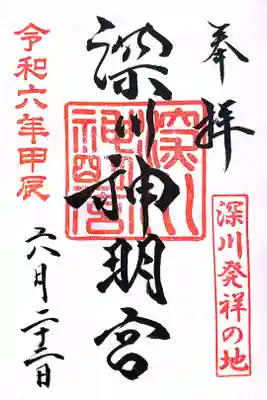 奉拝
深川発祥の地
深川神明宮
深川神明宮
令和六年甲辰
六月二十三日